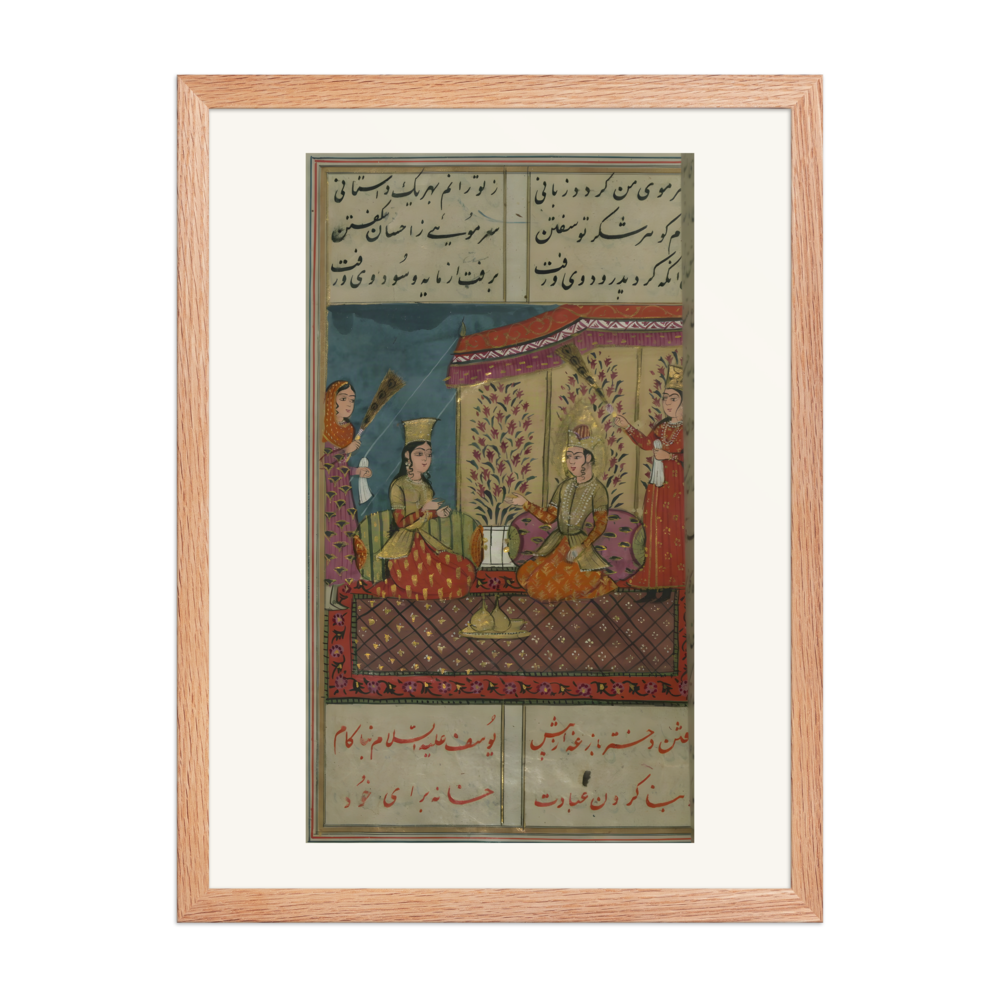 موی من کردد زبانی ز تو رانم بهر یک داستانی
کوهر شکر تو سفتن سر مویے ز احسان گفتن
کرد بدرود وی و رفت برفت از مایه و سود وی و رفت
دختر بازغه یوسف علیه السلام بنا کام
بنا کردن عبادت خانه برای خود